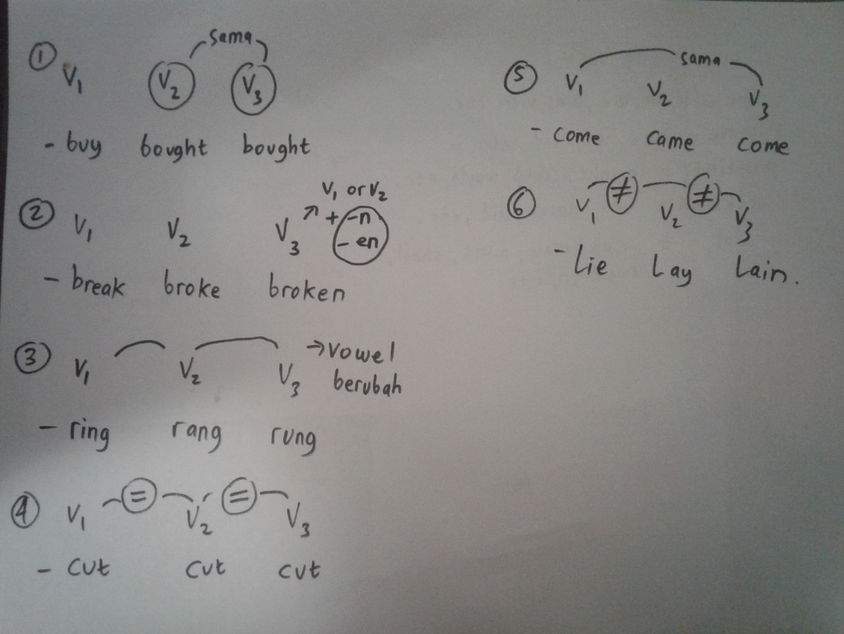 ① V₁ V₂ sama V₃
- buy bought bought
V₁ or V₂
② V₁ V₂ V₃ ↗ + -n
- en
- break broke broken
③ V₁ V₂ V₃ → Vowel
berubah
- ring rang rung
④ V₁ = V₂ = V₃
- cut cut cut
⑤ V₁ sama V₂ V₃
- come came come
⑥ V₁ ≠ V₂ ≠ V₃
- Lie Lay Lain.